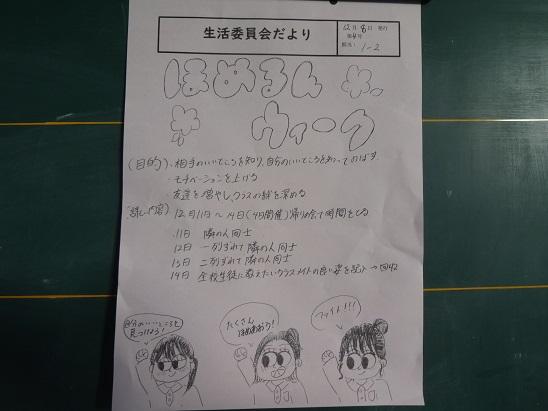 生活委員会だより
12月8日 発行
第4号
担当: 1-2
ほめるん
ウィーク
(目的)・相手のいいところを知り、自分のいいところを知ってのばす
・モチベーションを上げる
・友達を増やし、クラスの絆を深める
12月11日〜14日(4日開催)帰りの会で時間をとる
11日 隣の人同士
12日 一列ずれて隣の人同士
13日 二列ずれて隣の人同士
14日 全校生徒に教えたいクラスメイトの良い姿を記入→回収
自分のいいところを
見つけよう!
たくさん
ほめあおう!
ファイト!!!